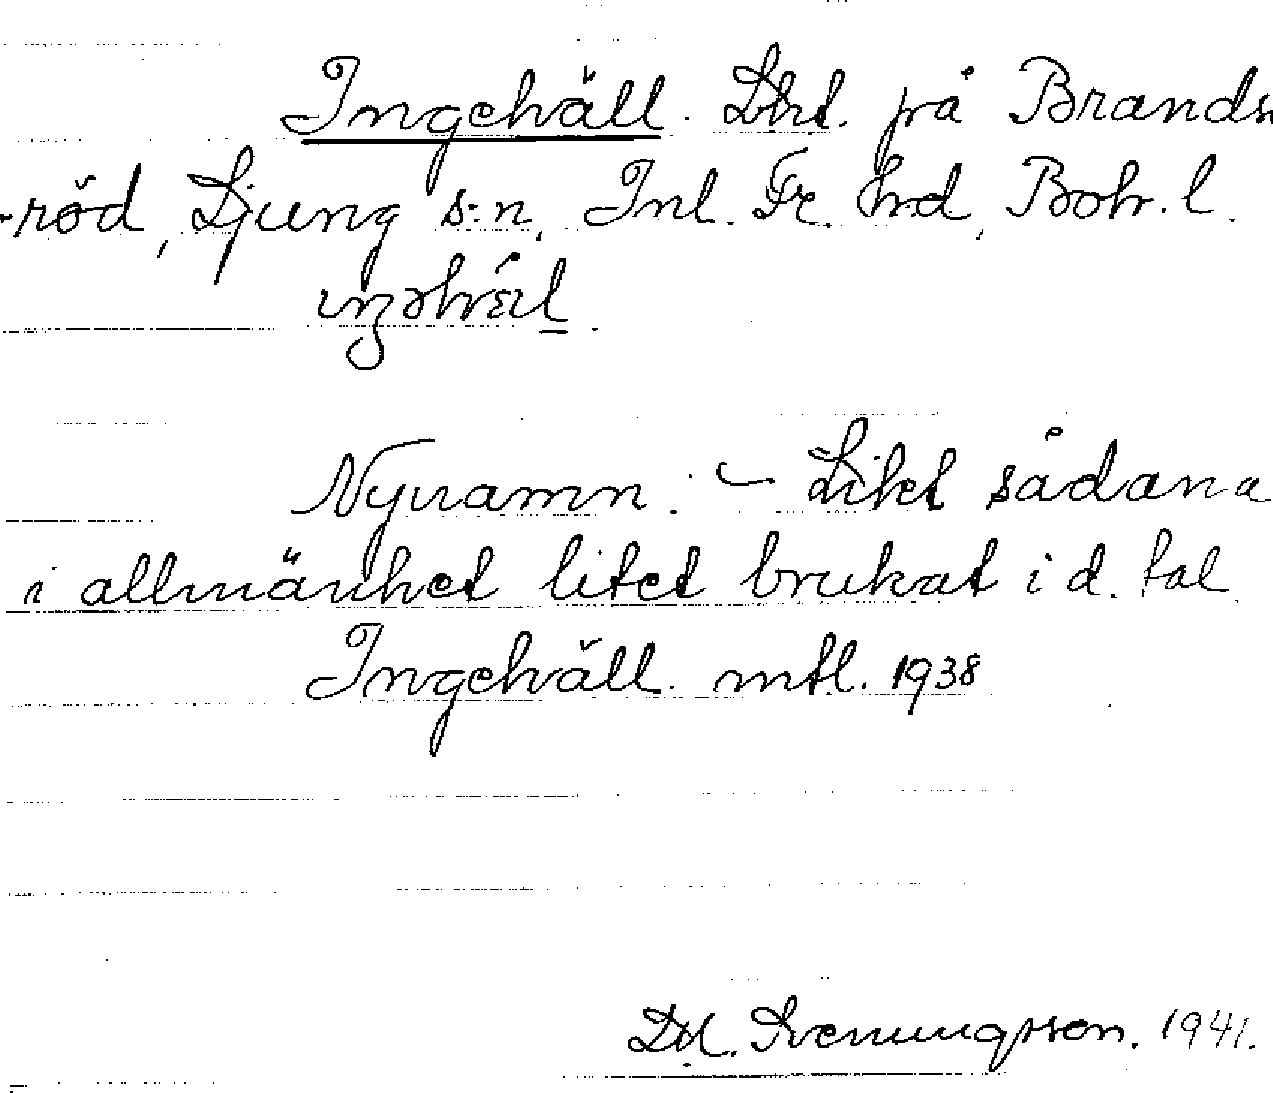 Ingehäll. Lht. på Brands
-röd, Ljung s:n, Inl. Fr. hrd, Boh. l.
Nynamn. – Likt sådana
i allmänhet litet brukat i d. tal
Ingehäll. mtl. 1938
D. Svenningsson. 1941.